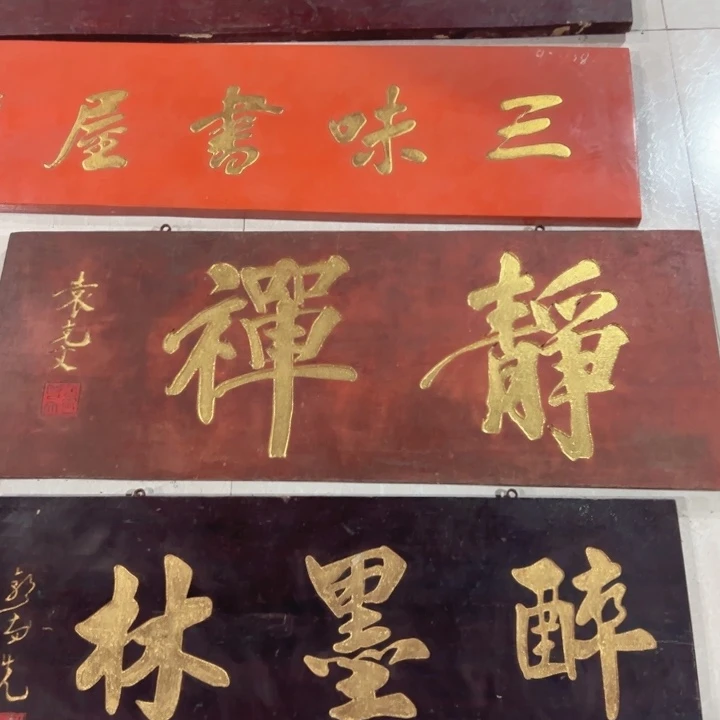 三味書屋
靜禪
袁克文
醉墨林
郭尚先